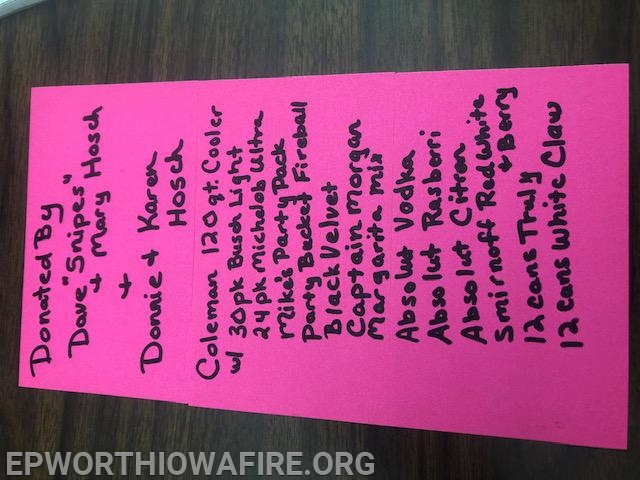 Donated By
Dave "Snipes"
+ Mary Hosch
+
Donnie + Karen
Hosch
Coleman 120 qt. Cooler
w/ 30pk Busch Light
24pk Michelob Ultra
Mike's Party Pack
Party Bucket Fireball
Black Velvet
Captain Morgan
Margarita mix
Absolut Vodka
Absolut Rasberri
Absolut Citron
Smirnoff Red White
+ Berry
12 cans Truly
12 cans White Claw
EPWORTHIOWAFIRE.ORG